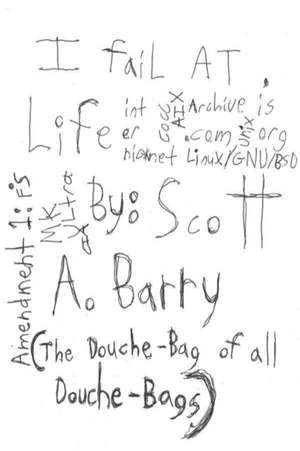 I fail AT
Life
int
er
niaonet
GOUL
AIX
Archive.is
.com
Unix
org
Linux/GNU/BSD
Amendment 1:FS
MK
Ultra
By: Scott
A. Barry
(The Douche-Bag of all
Douche-Bags)